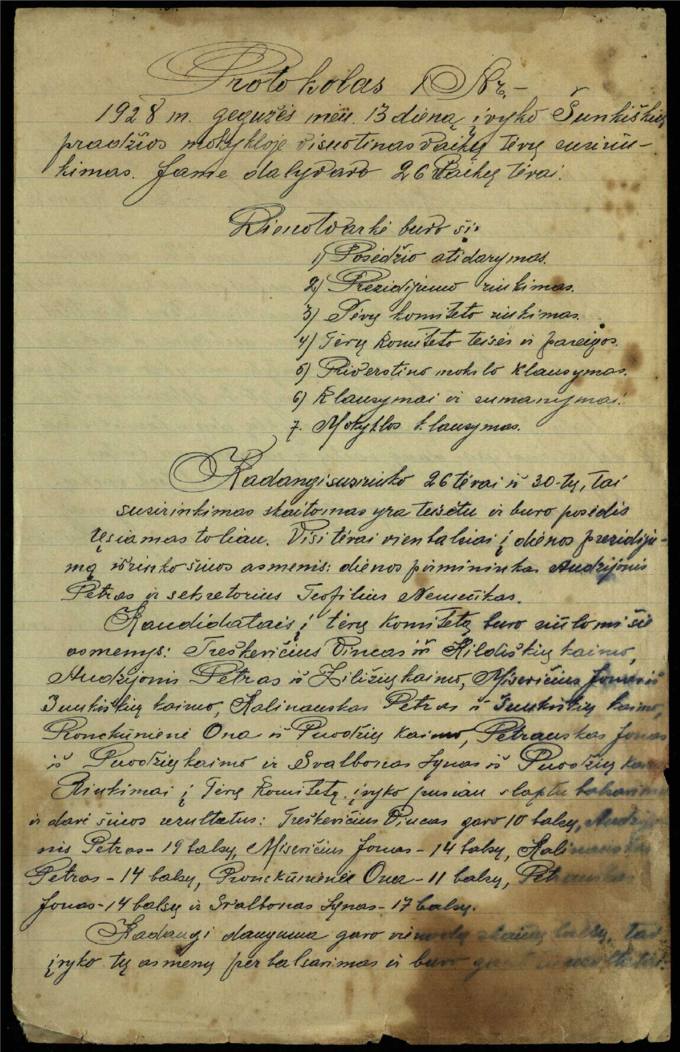 Protokolas 1 Nr.–
1928 m. gegužės mėn. 13 dieną įvyko Šunkiškių
pradžios mokykloje visuotinas vaikų tėvų susirin-
kimas. Jame dalyvavo 26 vaikų tėvai.
Dienotvarkė buvo ši:
1) Posėdžio atidarymas.
2) Prezidijumo rinkimas.
3) Tėvų komiteto rinkimas.
4) Tėvų komiteto teisės ir pareigos.
5) Priverstino mokslo klausymas.
6) Klausymai ir sumanymai.
7. Mokyklos klausymas.
Kadangi susirinko 26 tėvai iš 30-ty, tai
susirinkimas skaitomas yra teisėtu ir buvo posėdis
tęsiamas toliau. Visi tėvai vienbalsiai į dienos prezidiju-
mą išrinko šiuos asmenis: dienos pirmininką Audzijonis
Petras ir sekretorius Teofilius Nemeikas.
Kandidatais į tėvų komitetą buvo siūlomi šie
asmenys: Treškevičius Vincas iš Kildiškių kaimo,
Audzijonis Petras iš Žiližių kaimo, Misevičius Jonas iš
Šunkiškių kaimo, Kalinauskas Petras iš Šunkiškių kaimo,
Pronckūnienė Ona iš Puodžių kaimo, Petrauskas Jonas
iš Puodžių kaimo ir Svalbonas Zynas iš Puodžių
Rinkimai į Tėvų komitetą įvyko pusiau slaptu balsavimu
ir davė šiuos rezultatus: Treškevičius Vincas gavo 10 balsų, Audzijo-
nis Petras – 19 balsų, Misevičius Jonas – 14 balsų, Kalinauskas
Petras – 14 balsų, Pronckūnienė Ona – 11 balsų, Petrauskas
Jonas – 14 balsų ir Svalbonas Zynas – 17 balsų.
Kadangi dauguma gavo vienodų skaičių balsų, tai
įvyko tų asmenų perbalsavimas ir buvo